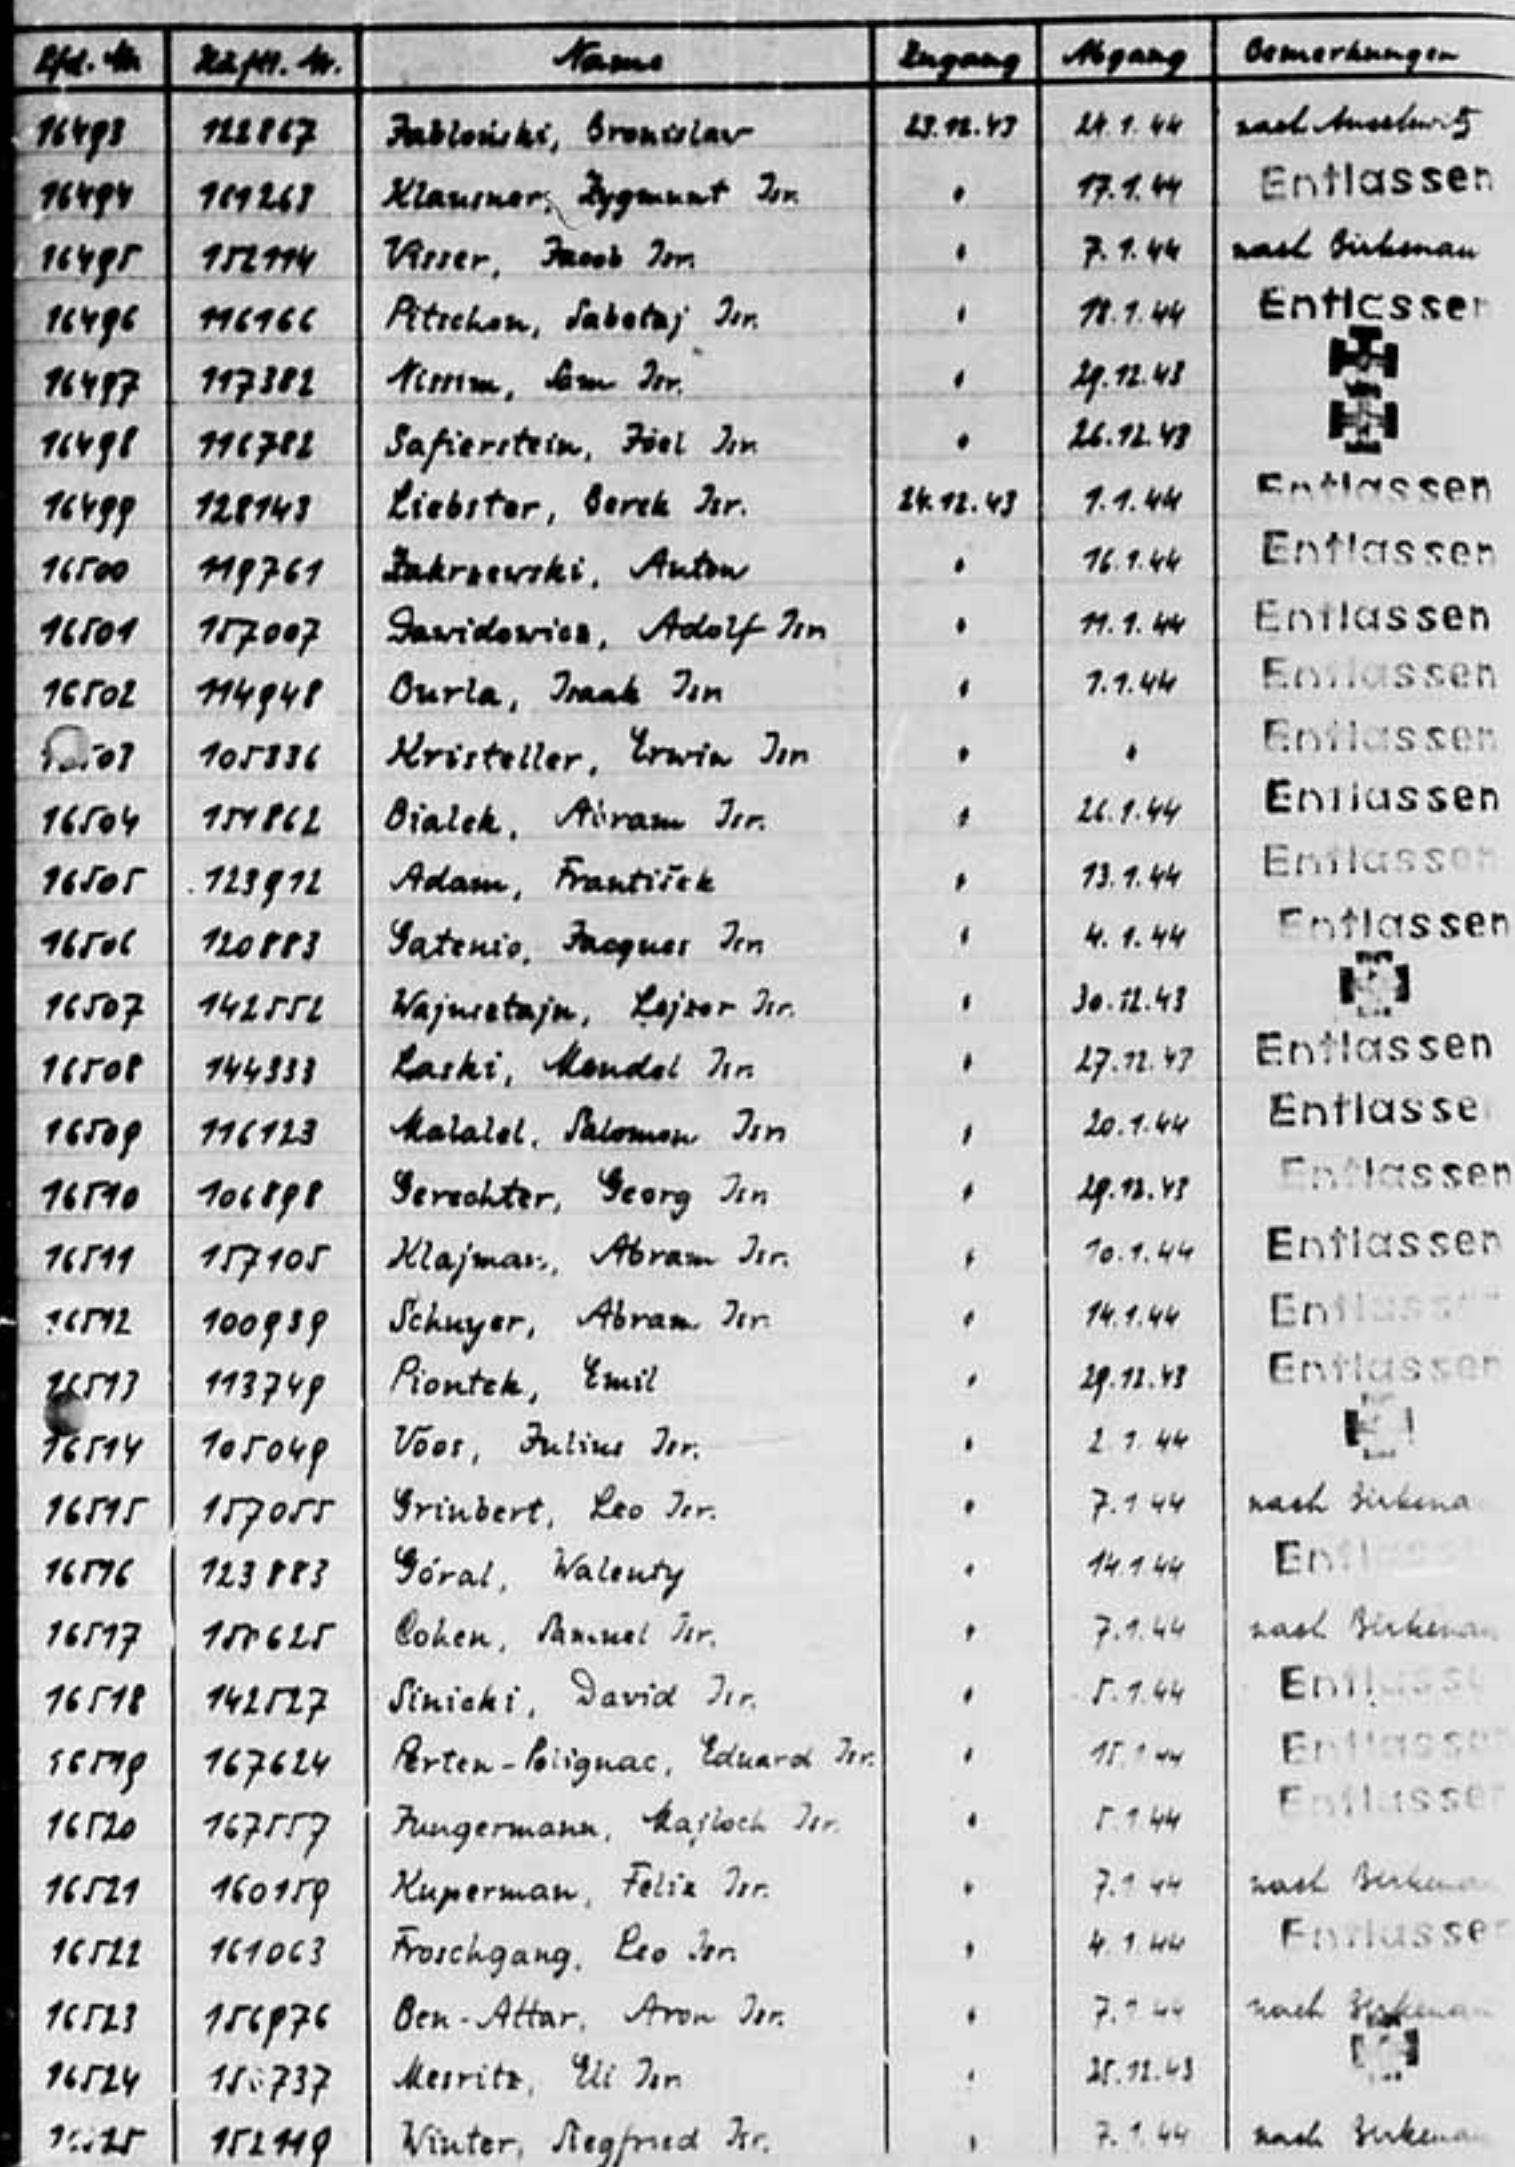 Lfd. Nr. Häftl. Nr. Name Zugang Abgang Bemerkungen
16493 122867 Jabloński, Bronislaw 23.12.43 24.1.44 nach Auschwitz
16494 161263 Klausner, Zygmunt Isr. " 17.1.44 Entlassen
16495 152114 Visser, Jacob Isr. " 7.1.44 nach Birkenau
16496 116166 Pitschon, Sabetaj Isr. " 18.1.44 Entlassen
16497 117382 Nissim, Sam Isr. " 29.12.43
16498 116782 Safierstein, Joel Isr. " 26.12.43
16499 128143 Liebster, Berek Isr. 24.12.43 1.1.44 Entlassen
16500 119761 Zakrzewski, Anton " 16.1.44 Entlassen
16501 157007 Dawidowicz, Adolf Isr. " 11.1.44 Entlassen
16502 114948 Burla, Isaak Isr. " 1.1.44 Entlassen
105336 Kristeller, Erwin Isr. " " Entlassen
16504 151862 Bialek, Abram Isr. " 26.1.44 Entlassen
16505 123912 Adam, František " 13.1.44 Entlassen
16506 120883 Gatenio, Jacques Isr. " 4.1.44 Entlassen
16507 142552 Wajnsztajn, Lejzor Isr. " 30.12.43
16508 144333 Laski, Mendel Isr. " 27.12.43 Entlassen
16509 116123 Malalel, Salomon Isr. " 20.1.44 Entlasse
16510 106898 Gerechter, Georg Isr. " 29.12.43 Entlassen
16511 157105 Klajman, Abram Isr. " 10.1.44 Entlassen
16512 100939 Schuyer, Abram Isr. " 14.1.44 Entlassen
16513 113749 Piontek, Emil " 29.12.43 Entlassen
16514 105049 Voos, Julius Isr. " 2.1.44
16515 157055 Grinbert, Leo Isr. " 7.1.44 nach Birkena
16516 123883 Góral, Walenty " 14.1.44
16517 Cohen, Samuel Isr. " 7.1.44 nach Birkenau
16518 142527 Sinicki, David Isr. " 5.1.44 Entlasse
16519 167624 Perten-Polignac, Eduard Isr. " 15.1.44 Entlassen
16520 167557 Jungermann, Majloch Isr. " 5.1.44 Entlassen
16521 160159 Kuperman, Felix Isr. " 7.1.44 nach Birkenau
16522 161063 Froschgang, Leo Isr. " 4.1.44 Entlassen
16523 156976 Ben-Attar, Aron Isr. " 7.1.44 nach Birkenau
16524 Mesritz, Eli Isr. " 25.12.43
152119 Winter, Siegfried Isr. " 7.1.44 nach Birkenau